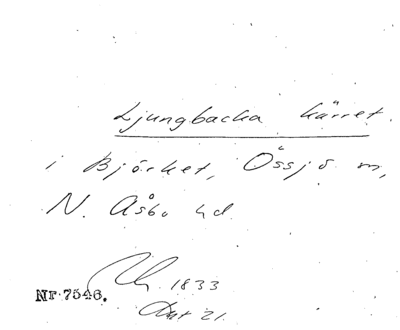 Ljungbacka kärret.
i Björket, Össjö m,
N. Åsbo hd.
1833
Akt 21.
Nr 7546.